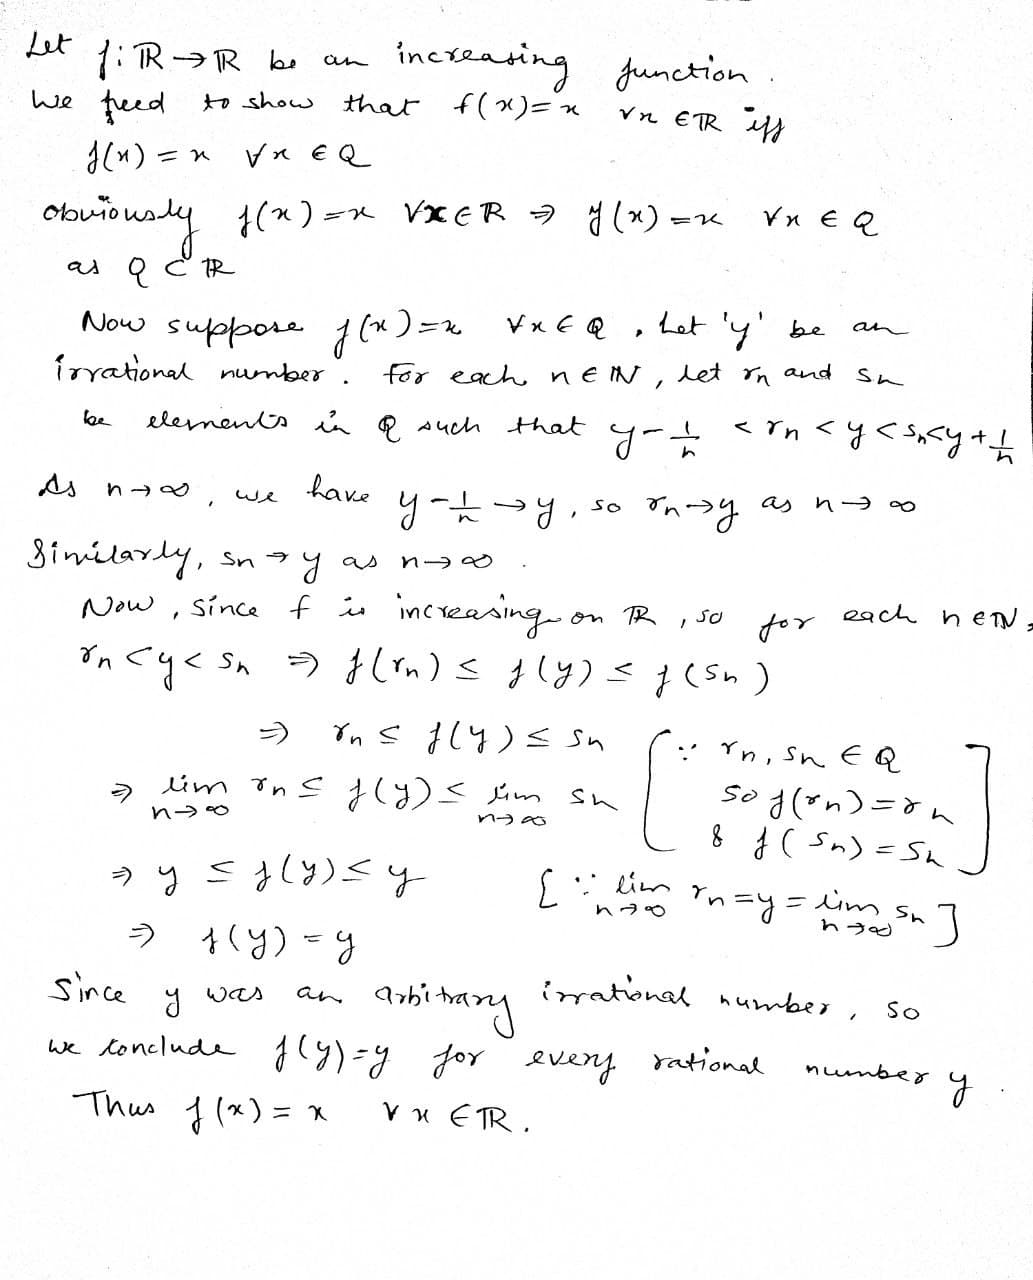 Let f: ℝ → ℝ be an increasing function.
We need to show that f(x) = x ∀x ∈ ℝ iff
f(x) = x ∀x ∈ Q
obviously f(x) = x ∀x ∈ R ⇒ f(x) = x ∀x ∈ Q
as Q ⊂ ℝ
Now suppose f(x) = x ∀x ∈ Q, Let 'y' be an
irrational number. For each n ∈ ℕ, let rn and sn
be elements in Q such that y - 1/n < rn < y < sn < y + 1/n
As n→∞, we have y - 1/n → y, so rn → y as n → ∞
Similarly, sn → y as n→∞.
Now, since f is increasing on ℝ, so for each n ∈ ℕ,
rn < y < sn ⇒ f(rn) ≤ f(y) ≤ f(sn)
⇒ rn ≤ f(y) ≤ sn [∵ rn, sn ∈ Q
so f(rn) = rn
& f(sn) = sn]
⇒ lim n→∞ rn ≤ f(y) ≤ lim n→∞ sn
⇒ y ≤ f(y) ≤ y [∵ lim n→∞ rn = y = lim n→∞ sn]
⇒ f(y) = y
Since y was an arbitrary irrational number, so
we conclude f(y) = y for every rational number y.
Thus f(x) = x ∀x ∈ ℝ.